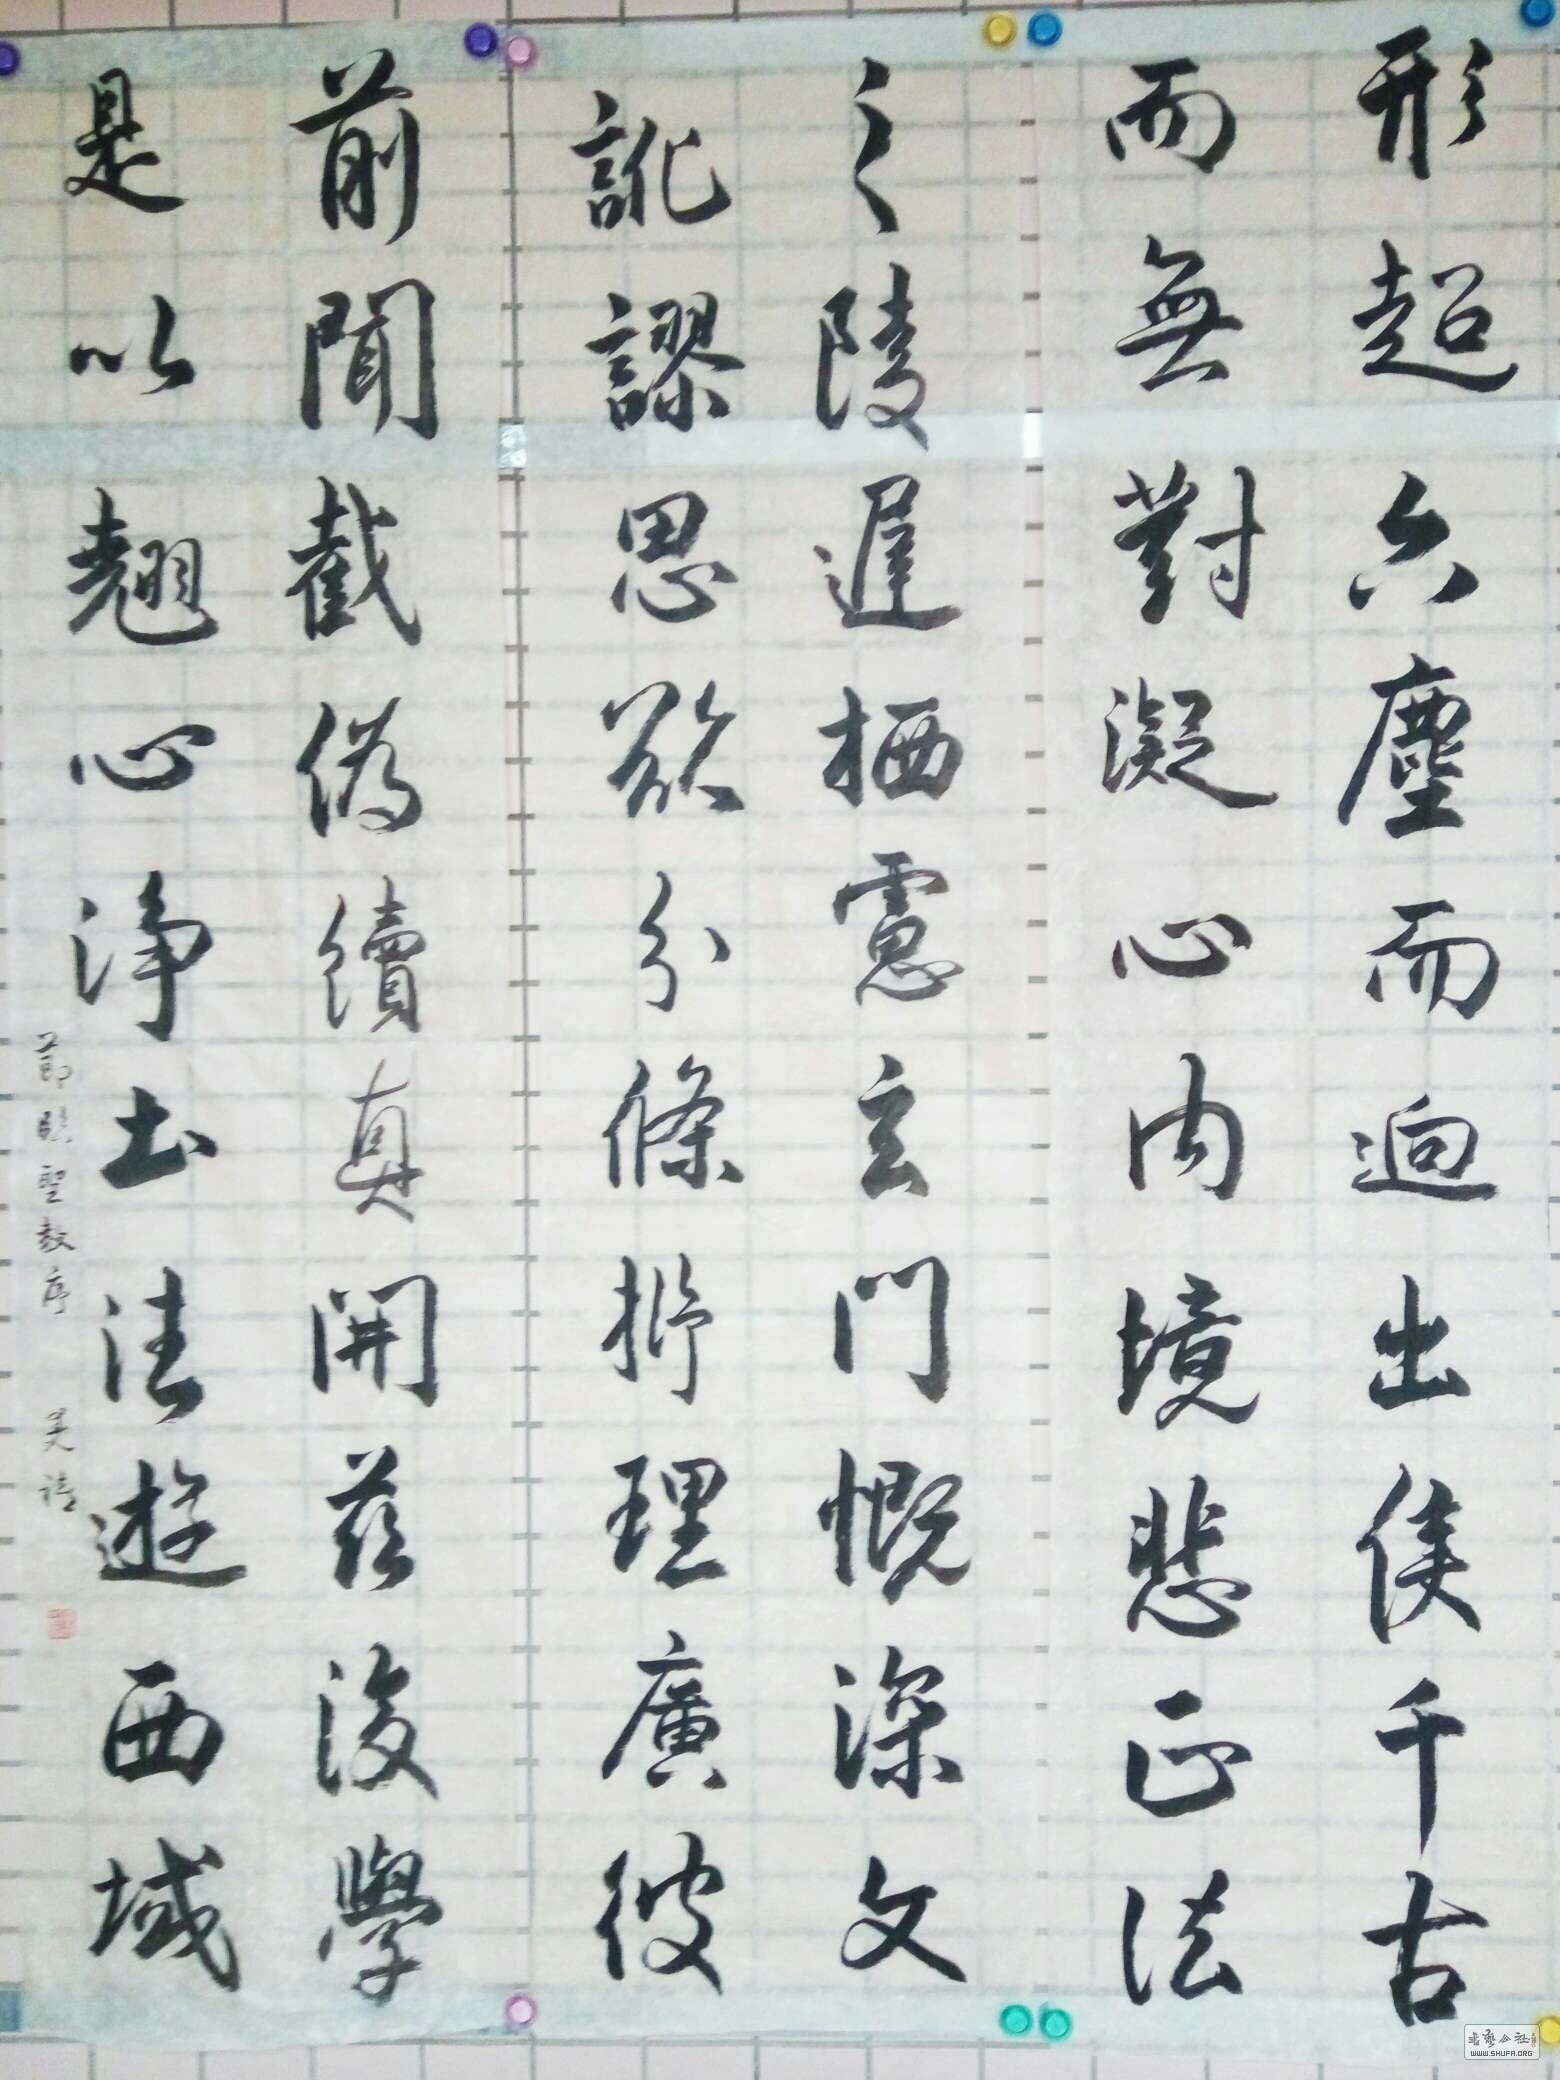 形超六塵而迥出隻千古
而無對凝心內境悲正法
之陵遲栖慮玄門慨深文
訛謬思欲分條析理廣彼
前聞截偽續真開茲後學
是以翹心淨土往遊西域
節臨聖教序 吴
書藝公社
WWW.SHUFA.ORG